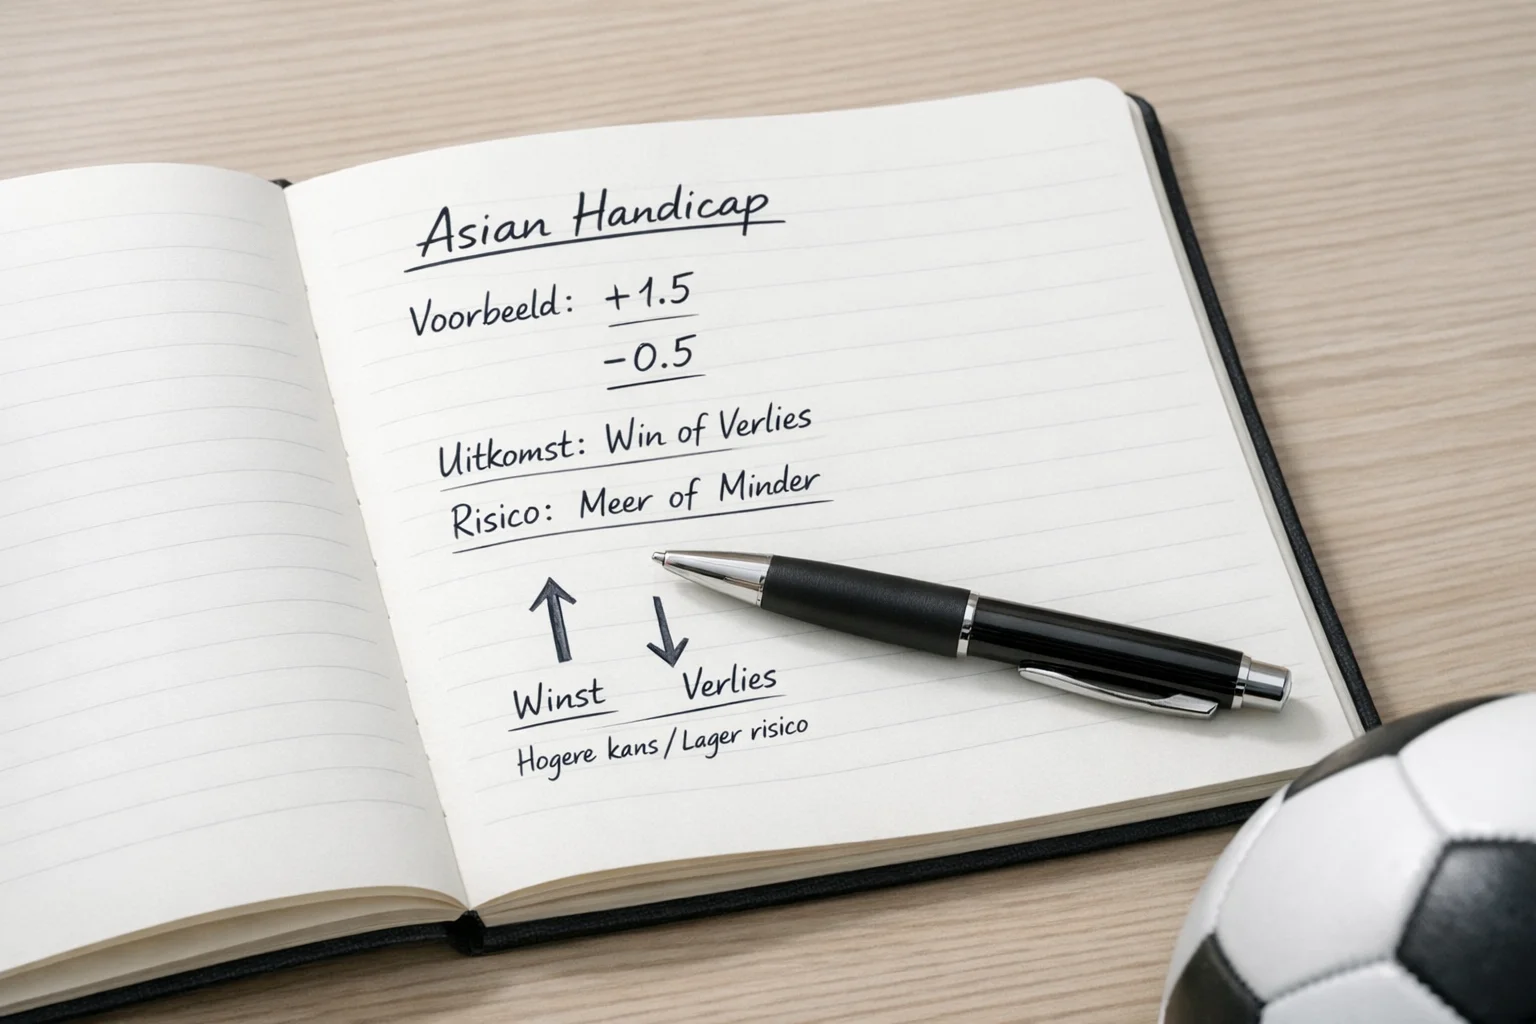 Asian Handicap
Voorbeeld: +1.5
-0.5
Uitkomst: Win of Verlies
Risico: Meer of Minder
Winst Verlies
Hogere kans / Lager risico